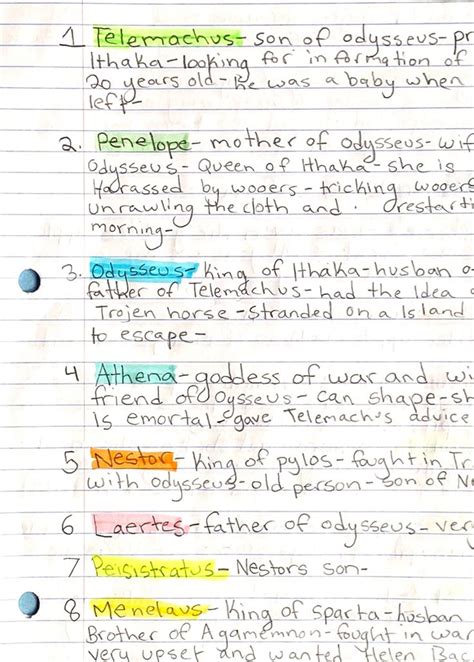 1 Telemachus- son of odysseus- pr
Ithaka- looking for information of
20 years old- he was a baby when
left-
2. Penelope- mother of odysseus- wif
Odysseus- Queen of Ithaka- she is
Harassed by wooers- tricking wooers
unrawling the cloth and . restarti
morning-
3. Odysseus- King of Ithaka- husban o
father of Telemachus- had the Idea
Trojen horse- Stranded on a Island
to escape-
4 Athena- goddess of war and wi
friend of Oysseus- can shape-sh
Is emortal- gave Telemachus advice
5 Nestor- King of pylos- fought in Tr
with odysseus- old person- son of Ne
6 Laertes- father of odysseus- ver
7 Peisistratus- Nestors son-
8 Menelaus- King of sparta- husban
Brother of Agamemnon- fought in war
very upset and wanted Helen Bac